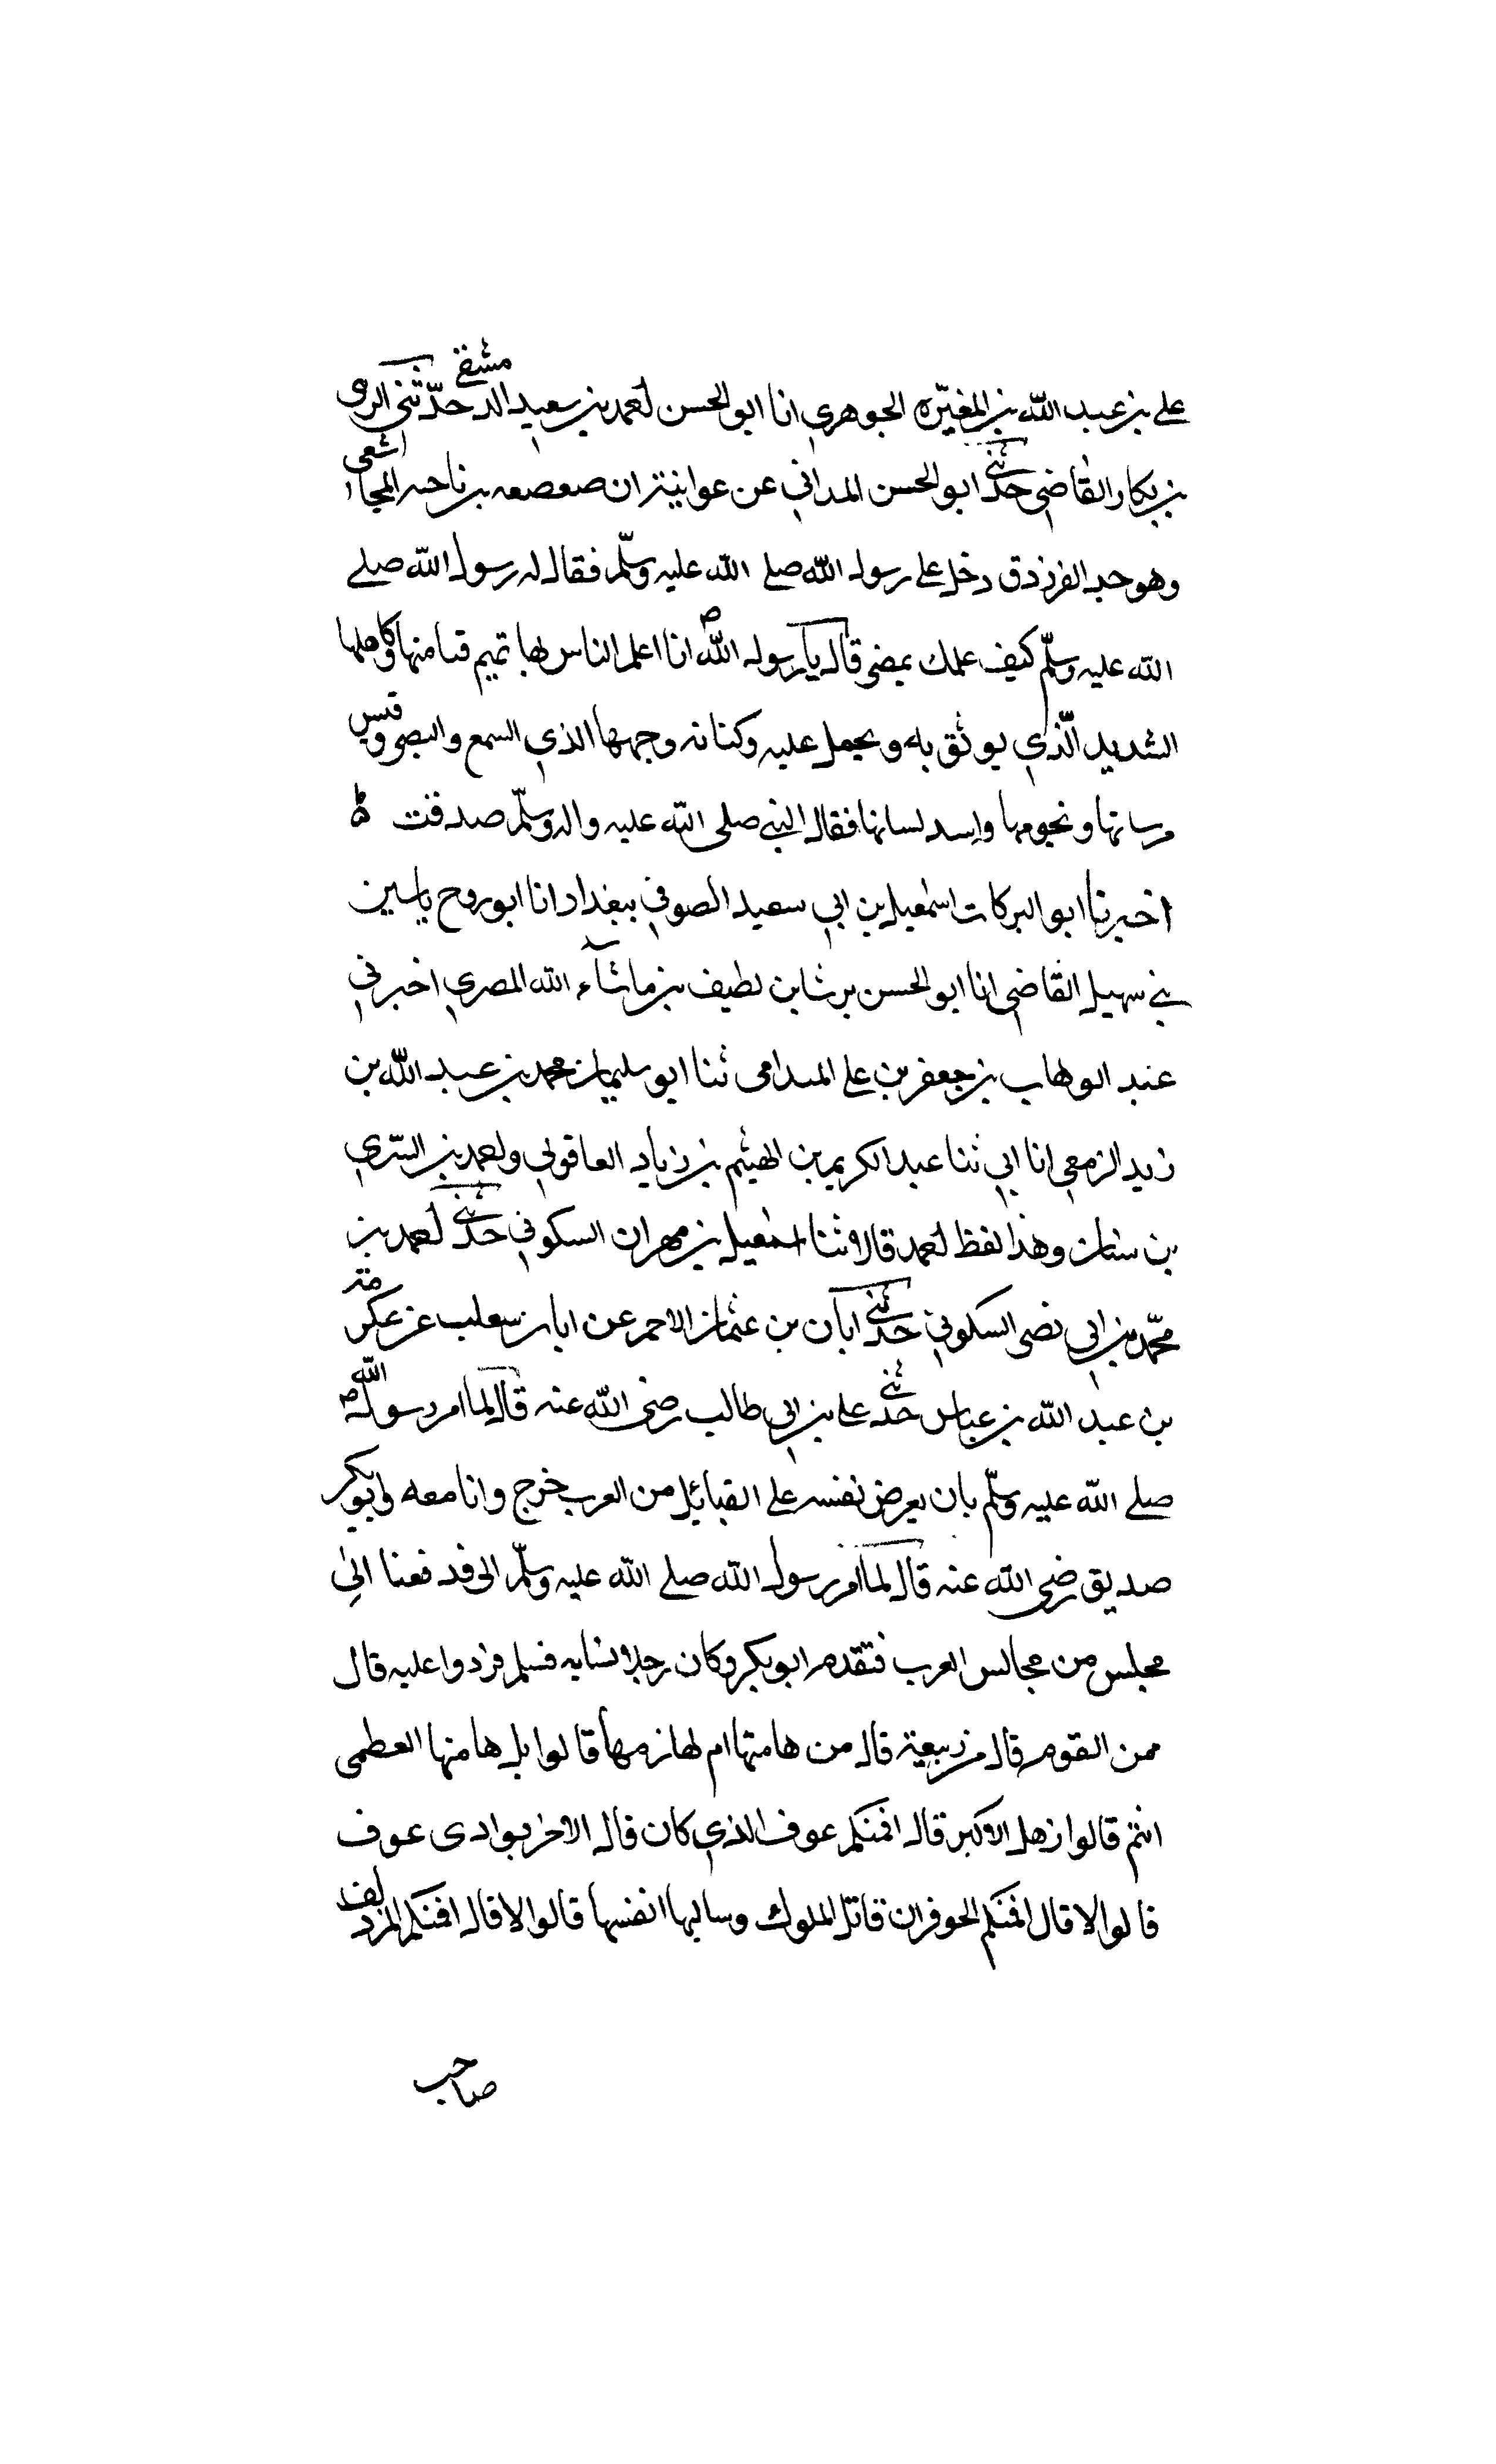 علي بن عبد الله بن المغيّره الجوهري انا ابو الحسن احمد بن سعيد الدمشقي حدّثني الزبير
بن بكار القاضي حدثني ابو الحسن المداني عن عوانية ان صعصعه بن ناجيه المجاشعي
وهو جد الفرزدق دخل على رسول الله صلى الله عليه وسلّم فقال له رسول الله صلى
الله عليه وسلّم كيف علمك بمضر قال يا رسول الله انا اعلم الناس بها تميم هامنها وكاهلها
الشديد الّذي يوثق به و يحمل عليه وكنانه وجهها الذي السمع والبصر وقيس
فرسانها ونجومها واسد لسانها فقال النبي صلى الله عليه واله وسلّم صدقت
اخبرنا ابو البركات اسمعيل بن ابي سعيد الصوفي ببغداد انا ابو روح ياسين
بن سهيل القاضي انا ابو الحسن برشا بن نطيف بن ماشآء الله المصري اخبرني
عبد الوهاب بن جعفر بن علي الميدامي ثنا ابو سليمان محمد بن عبد الله بن
زيد الزمعي انا ابي ثنا عبد الكريم بن الهيثم بن زياد العاقولي واحمد بن السّري
بن سنان وهذا لفظ احمد قالا ثنا اسمعيل بن مهران السكوني حدثني احمد بن
محمّد بن ابي نصر السكوني حدثني ابان بن عثمان الاحمر عن ابان بن تغلب عن عكرمة
بن عبد الله بن عباس حدثني علي بن ابي طالب رضي الله عنه قال لما امر رسول الله
صلى الله عليه وسلّم بان يعرض نفسه على القبائل من العرب خرج وانا معه وابوبكر
صديق رضي الله عنه قال لما امر رسول الله صلى الله عليه وسلّم الى فدفعنا الى
مجلس من مجالس العرب فتقدم ابو بكر وكان رجلا نسابه فسلم فردوا عليه قال
ممن القوم قال من ربيعة قال من هامتها ام لهازمها قالوا بل هامتها العظمى
انتم قالوا ذهل الاكبر قال افمنكم عوف الذي كان قال الاخر بوادى عوف
قالوا لا قال افمنكم الحوفزان قاتل الملوك وسالبها انفسها قالوا لا قال افمنكم المزدلف
صاحب